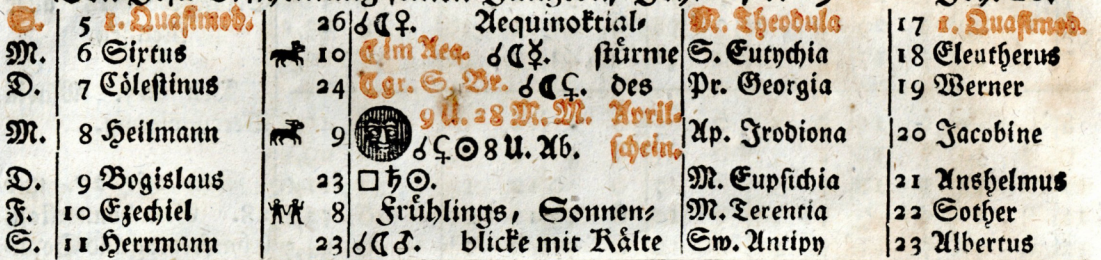 S. 5 1. Quasimod. 26 ☌☾♀. Aequinoktial- M. Theodula 17 1. Quasimod.
M. 6 Sixtus 10 ☾ im Aeq. ☌☾☿. stürme S. Eutychia 18 Eleutherus
D. 7 Cölestinus 24 ☾ gr. S. Br. ☌☾⚸. des Pr. Georgia 19 Werner
M. 8 Heilmann 9 9 U. 28 M. M. April- Ap. Irodiona 20 Jacobine
☌ ☉ 8 U. Ab. schein.
D. 9 Bogislaus 23 □♄☉. M. Eupsichia 21 Anshelmus
F. 10 Ezechiel 8 Frühlings, Sonnen- M. Terentia 22 Sother
S. 11 Herrmann 23 ☌☾♂. blicke mit Kälte Sw. Antipy 23 Albertus